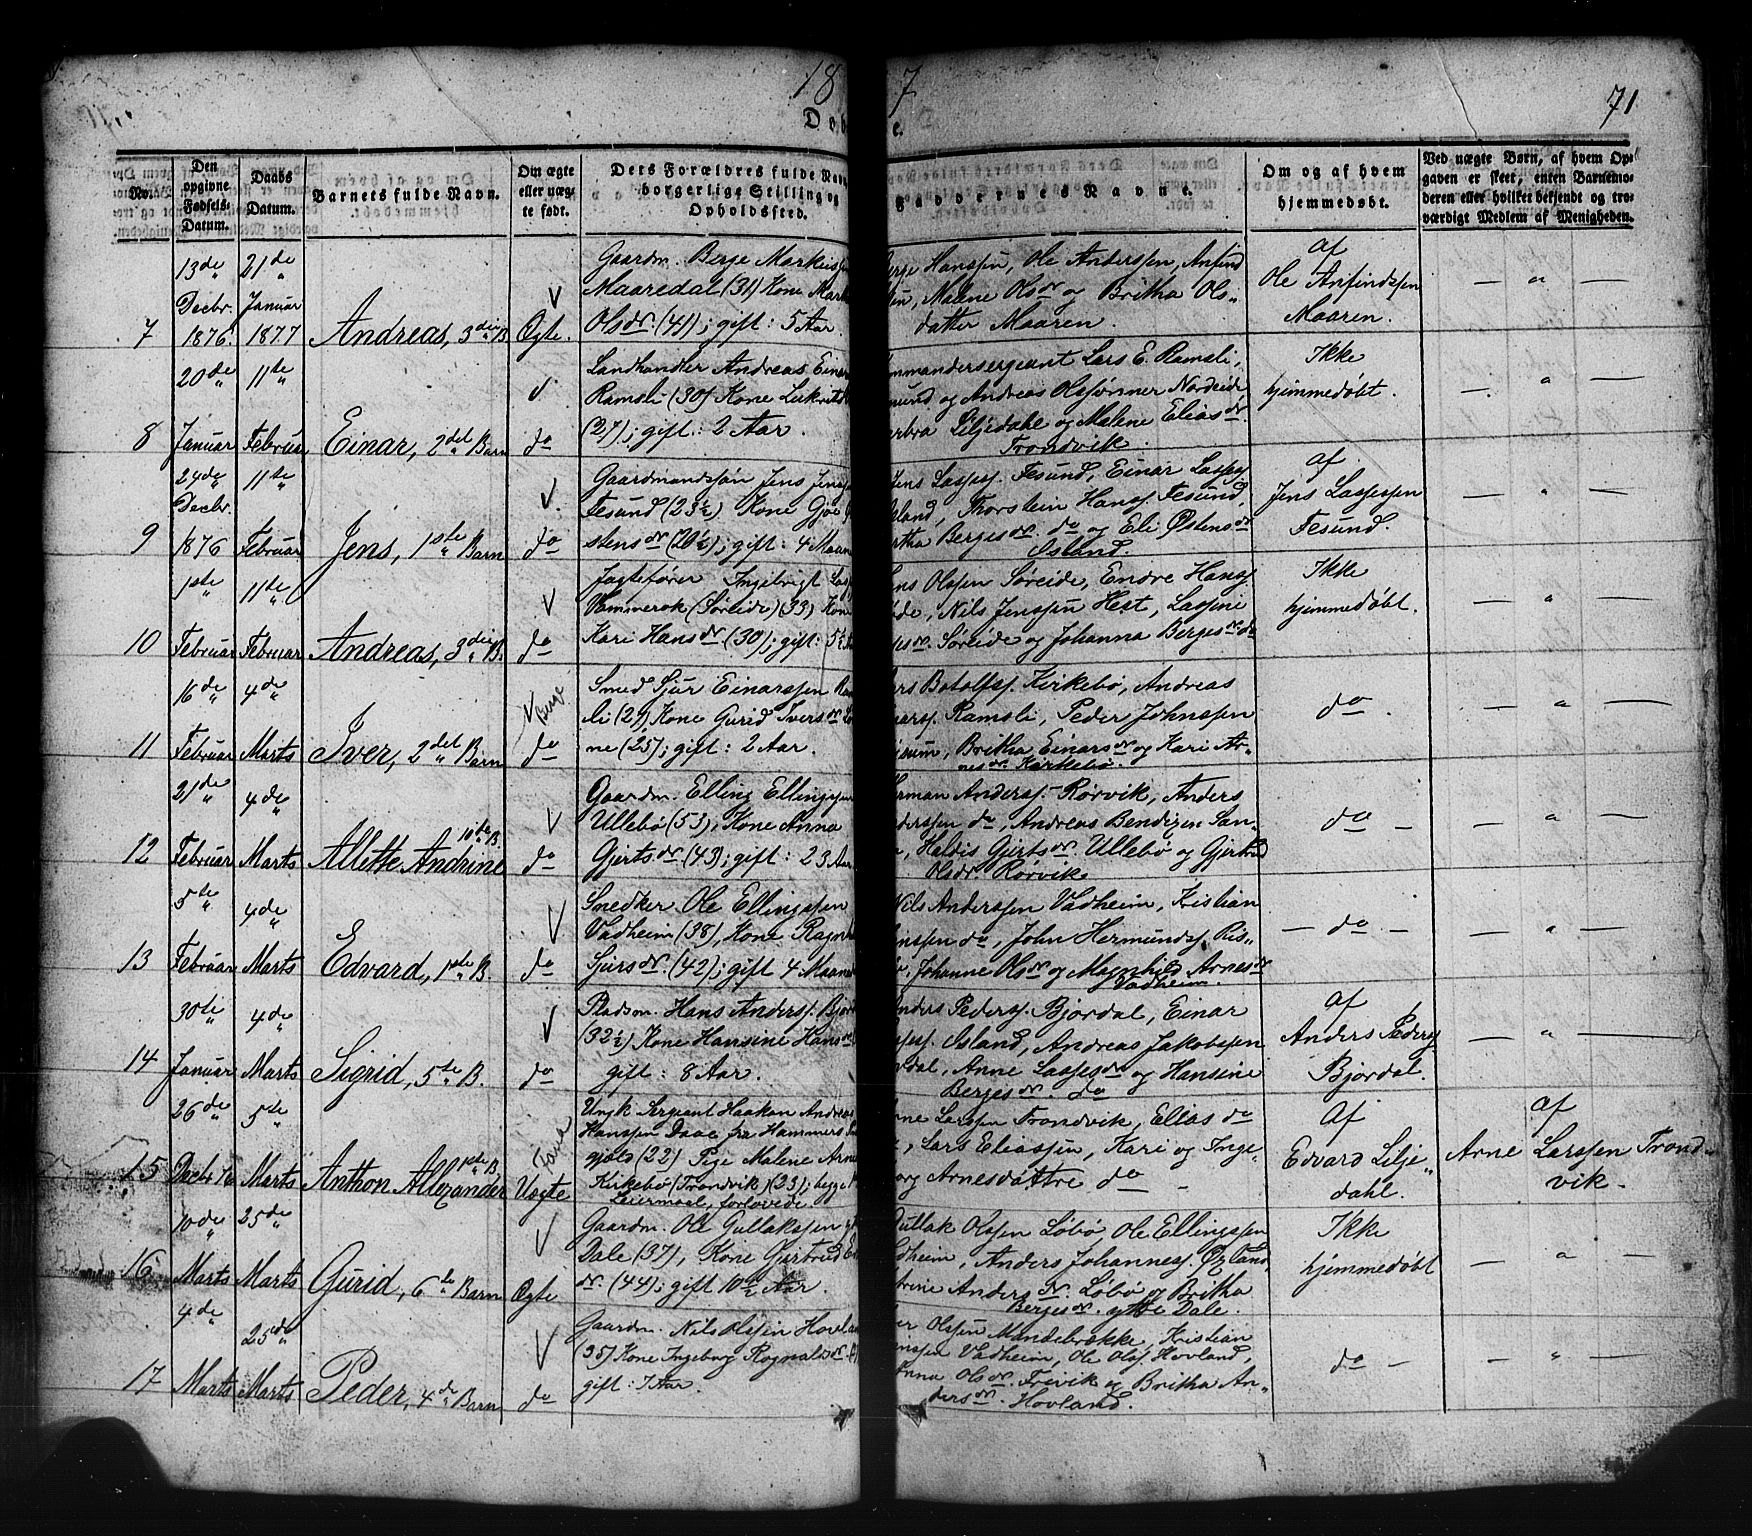 18
7
71
Døb
e.
No.
Den opgivne Fødsels-Datum.
Daabs Datum.
Barnets fulde Navn.
Om ægte eller uæg-te født.
Ders Forældres fulde Navn
borgerlige Stilling og
Opholdssted.
Faddernes Navne.
Om og af hvem hjemmedøbt.
Ved uægte Børn, af hvem Op-
gaven er skeet, enten Barnemo-
deren eller hvilket bekjendt og tro-
værdigt Medlem af Menigheden.
7
13de Decbr. 1876.
21de Januar 1877
Andreas, 3die B.
Ægte.
Gaardm. Berge Markus
Maaredal (31) Kone
Olsdr. (41); gift: 5 Aar.
Hanssen, Ole Anderssen, Anfind
Malene Olsdr og Britha Ols-
datter Maaren.
af
Ole Anfindssen
Maaren.
— " —
8
20de Januar
11te Februar
Einar, 2det Barn
do
Landhandler Andreas Einar
Ramsli (30) Kone
(27); gift: 2 Aar.
Lars E. Ramsli,
og Andreas Nordeide
Liljedahl og Malene Eliasdr
Trondvik.
Ikke
hjemmedøbt.
— " —
9
24de Decbr. 1876
11te Februar
Jens, 1ste Barn
do
Gaardmandssøn Jens
Fesund (23½) Kone
(20½); gift: 4 Maan
Lassess. Fesund, Einar Lassess.
Thorstein Hanss. Fesund,
Bergesdr. do og Eli Østensdr
Osland.
af
Jens Lassessen
Fesund.
— " —
10
1ste Februar
11te Februar
Andreas, 3die B.
do
Jagtefører Ingebrigt
Vammerok (Søreide) (33) Kone
Kari Hansdr (30); gift: 5½
Olssen Søreide, Endre Hanss.
Nils Jenssen Hest, Lassine
Søreide og Johanna Bergesdr. do
Ikke
hjemmedøbt.
— " —
11
16de Februar
4de Marts
Iver, 2det Barn
do
Smed Sjur Einarssen
(29) Kone Gurid Iversdr
ne (25); gift: 2 Aar.
Botolfss. Kirkebø, Andreas
Ramsli, Peder Johnssen
Britha Einarsdr og Kari Ar-
nesdr. Kirkebø.
do
— " —
12
21de Februar
4de Marts
Allette Andrine 10de B.
do
Gaardm. Elling Ellingssen
Ullebø (53), Kone Anna
Gjertsdr (43); gift: 23 Aar
Anderss. Rørvik, Anders
do, Andreas Bendixen San-
Heldis Gjertsdr. Ullebø og Gjertrud
Olsdr. Rørvik.
do —
— " —
13
5te Februar
4de Marts
Edvard, 1ste B.
do
Snedker Ole Ellingssen
Vadheim (38), Kone
Sjursdr (42); gift 4 Maaned
Nils Anderssen Vadheim, Kristian
do, John Hermunds. Ris-
Johanne Olsdr og Magnhild Arnesdr
Vadheim.
— do —
— " —
14
30te Januar
4de Marts
Sigrid, 5te B.
do
Pladsm. Hans Anderss.
(32½) Kone Hansine Hansdr
gift: 8 Aar.
Pederss. Bjordal, Einar
Osland, Andreas Jakobssen
Anne Lassesdr og Hansine
Bergesdr. do
af
Anders Peders.
Bjordal.
— " —
15
26de Decb 76
5te Marts
Anthon Allexander 1ste B.
Uægte
Ungk. Sergeant Haakon Andreas
Hanssen Daae fra Hammers
(22) Pige Malene Arne
Kirkebø (Trondvik) (23); begge
Leiermaal, forlovede.
Larssen Trondvik, Elias do
Lars Eliassen, Kari og Inge-
Arnesdøttre do —
Af
Edvard Lilje-
dahl.
af
Arne Larssen Trond-
vik.
16
10de Marts
25de Marts
Gurid, 6te Barn
Ægte
Gaardm. Ole Gullakssen
Dale (37), Kone Gjertrud
dr. (44); gift 10½ Aar.
Gullak Olssen Løbø, Ole Ellingssen
Anders Johanness.
Andersdr. Løbø og Britha
Bergesdr. ytte Dale.
Ikke
hjemmedøbt
— " —
17
4de Marts
25de Marts
Peder, 4de Barn
do
Gaardm. Nils Olssen
(35) Kone Ingeborg Rognaldsdr
gift: 7 Aar.
Olssen Kristian
Vadheim, Ole Olss. Hovland,
Olsdr. og Britha An-
dersdr. Hovland.
do —
— " —